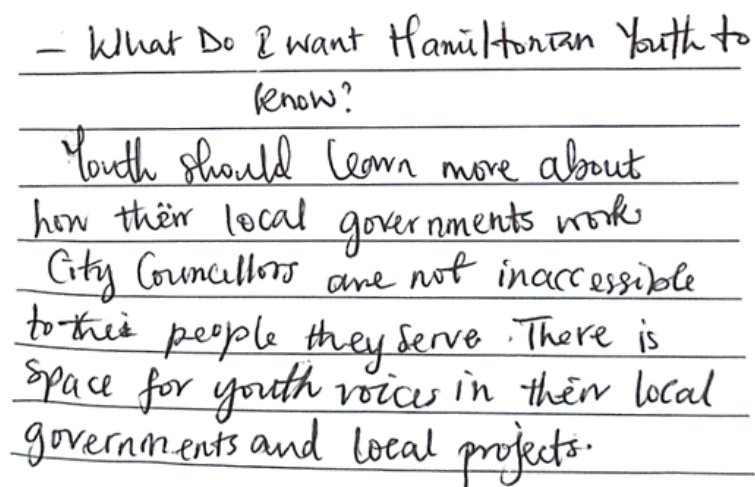 - What Do I want Hamiltonian Youth to
know?
Youth should learn more about
how their local governments work
City Councillors are not inaccessible
to the people they serve. There is
space for youth voices in their local
governments and local projects.